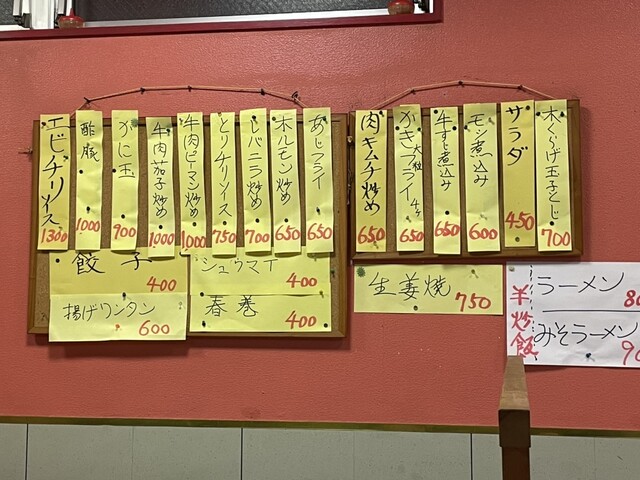 木くらげ玉子とじ
700
サラダ
450
モツ煮込み
600
牛すじ煮込み
650
かきフライ 大粒 4ケ
650
肉キムチ炒め
650
あじフライ
650
ホルモン炒め
650
レバニラ炒め
700
とりチリソース
750
牛肉ピーマン炒め
1,000
牛肉茄子炒め
1,000
かに玉
900
酢豚
1,000
エビチリソース
1300
餃子
400
シュウマイ
400
揚げワンタン
600
春巻
400
生姜焼
750
半炒飯
ラーメン
みそラーメン